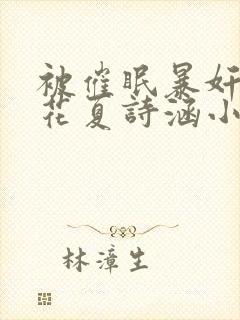 被催眠暴奸
花夏詩涵小
林漳生